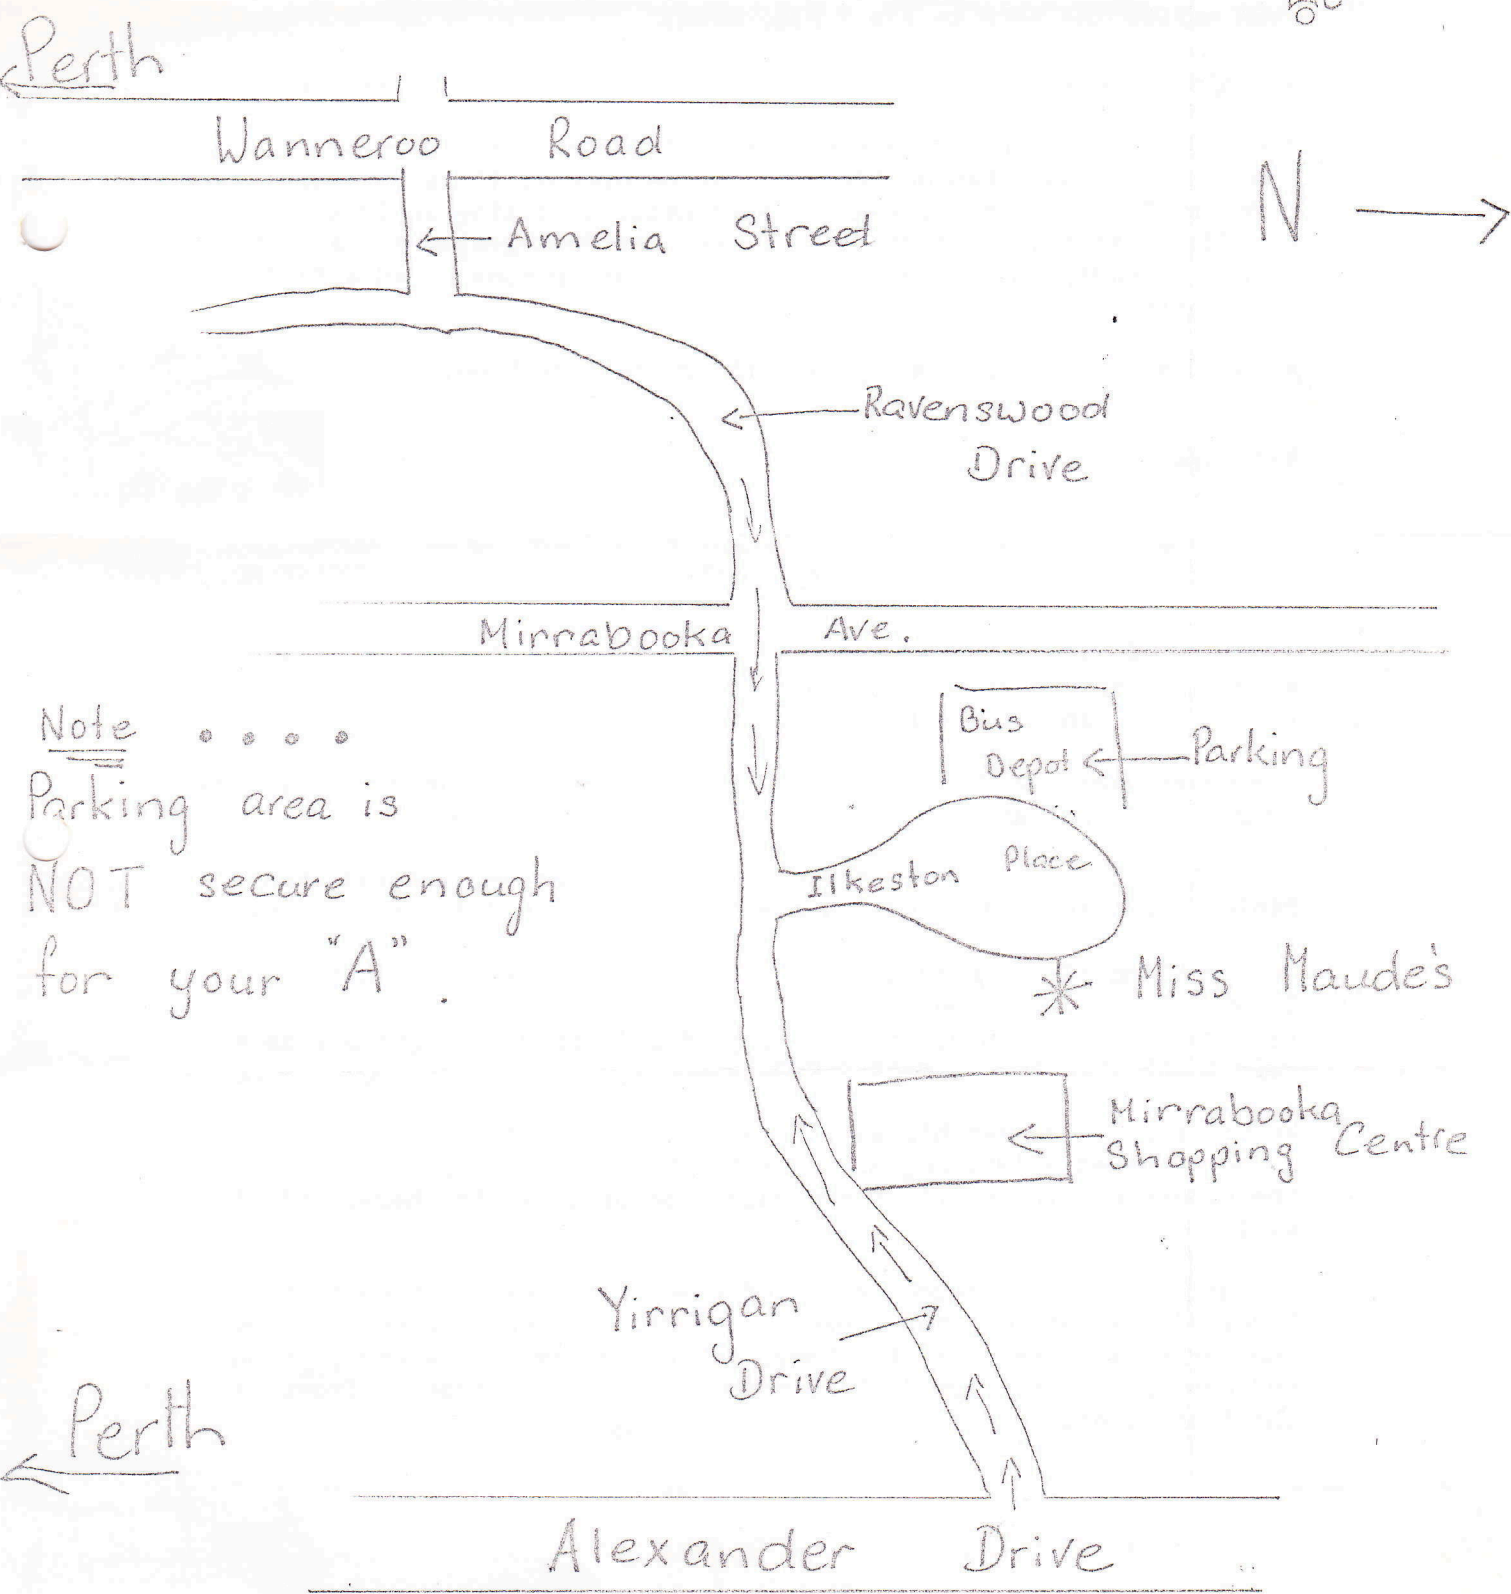 Perth
Wanneroo Road
N
Amelia Street
Ravenswood
Drive
Mirrabooka Ave.
Note ....
Parking area is
NOT secure enough
for your "A".
Bus
Depot
Parking
Ilkeston Place
Miss Maude's
Mirrabooka
Shopping Centre
Yirrigan
Drive
Perth
Alexander Drive